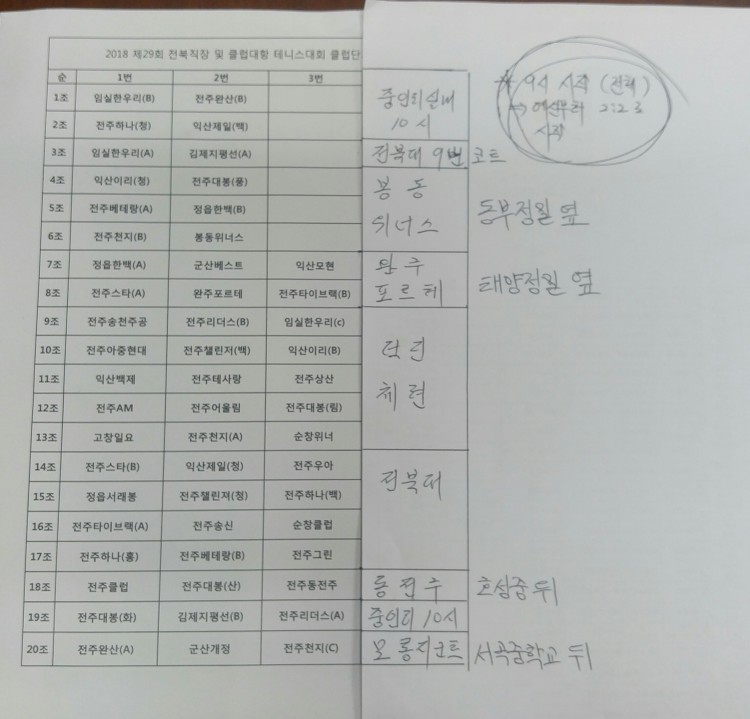 2018 제29회 전북직장 및 클럽대항 테니스대회 클럽단
순 1번 2번 3번
1조 임실한우리(B) 전주완산(B)
2조 전주하나(청) 익산제일(백)
3조 임실한우리(A) 김제지평선(A)
4조 익산이리(청) 전주대봉(풍)
5조 전주베테랑(A) 정읍한백(B)
6조 전주천지(B) 봉동위너스
7조 정읍한백(A) 군산베스트 익산모현
8조 전주스타(A) 완주포르테 전주타이브랙(B)
9조 전주송천주공 전주리더스(B) 임실한우리(c)
10조 전주아중현대 전주챌린저(백) 익산이리(B)
11조 익산백제 전주테사랑 전주상산
12조 전주AM 전주어울림 전주대봉(림)
13조 고창일요 전주천지(A) 순창위너
14조 전주스타(B) 익산제일(청) 전주우아
15조 정읍서래봉 전주챌린져(청) 전주하나(백)
16조 전주타이브랙(A) 전주송신 순창클럽
17조 전주하나(홍) 전주베테랑(B) 전주그린
18조 전주클럽 전주대봉(산) 전주동전주
19조 전주대봉(화) 김제지평선(B) 전주리더스(A)
20조 전주완산(A) 군산개정 전주천지(C)
중인리실내
10시
전북대 9번 코트
봉동
위너스
동부정월 옆
완주
포르테
태양정월 옆
체련
전북대
동전주
호성중 뒤
중인리 10시
모롱지코트 서곡중학교 뒤
9시 시작 (전체)
시작